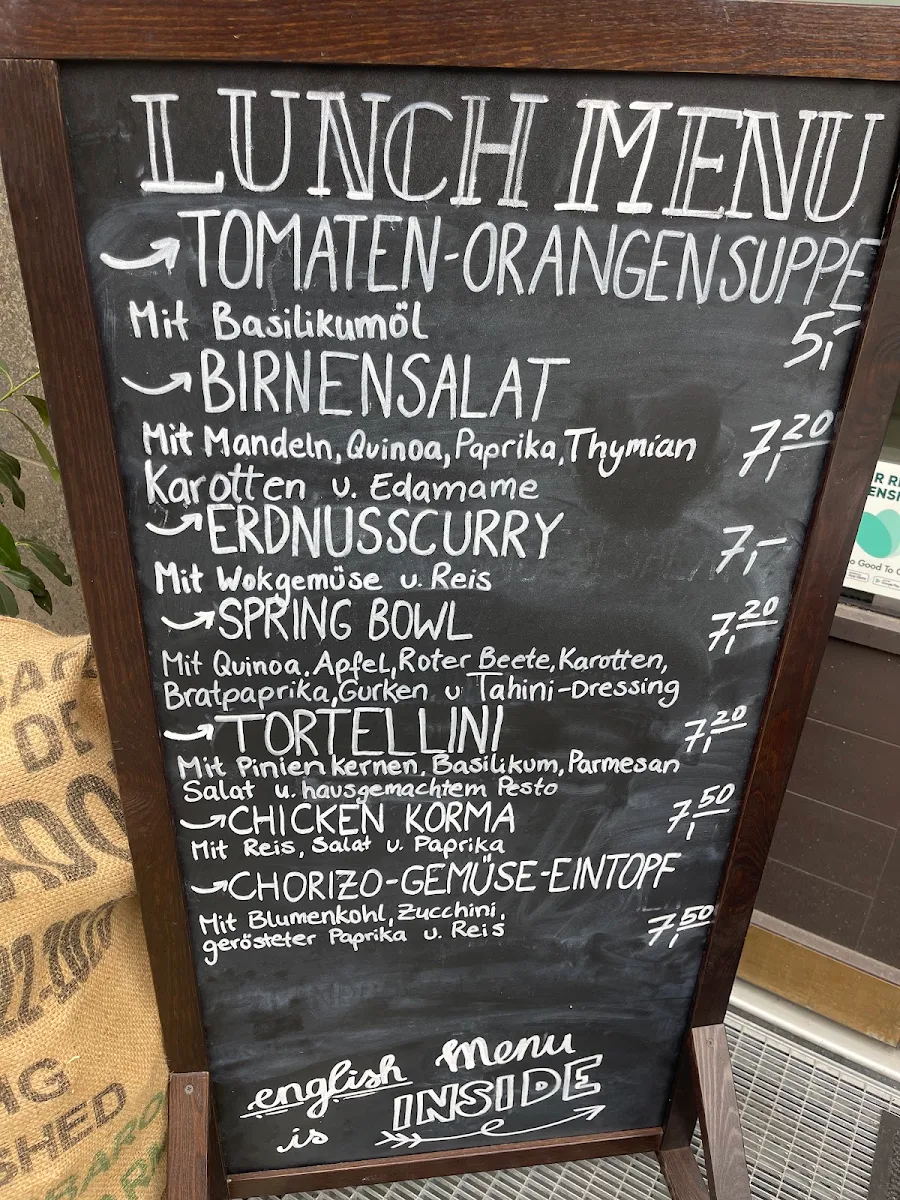 LUNCH MENU
TOMATEN-ORANGENSUPPE
Mit Basilikumöl 5,-
BIRNENSALAT
Mit Mandeln, Quinoa, Paprika, Thymian 7,20
Karotten u. Edamame
ERDNUSSCURRY
Mit Wokgemüse u. Reis 7,-
SPRING BOWL 7,20
Mit Quinoa, Apfel, Roter Beete, Karotten,
Bratpaprika, Gurken u Tahini-Dressing
TORTELLINI 7,20
Mit Pinienkernen, Basilikum, Parmesan
Salat u. hausgemachtem Pesto
CHICKEN KORMA 7,50
Mit Reis, Salat u. Paprika
CHORIZO-GEMÜSE-EINTOPF
Mit Blumenkohl, Zucchini, 7,50
gerösteter Paprika u. Reis
english Menu
is INSIDE
DE
SHED
Good To